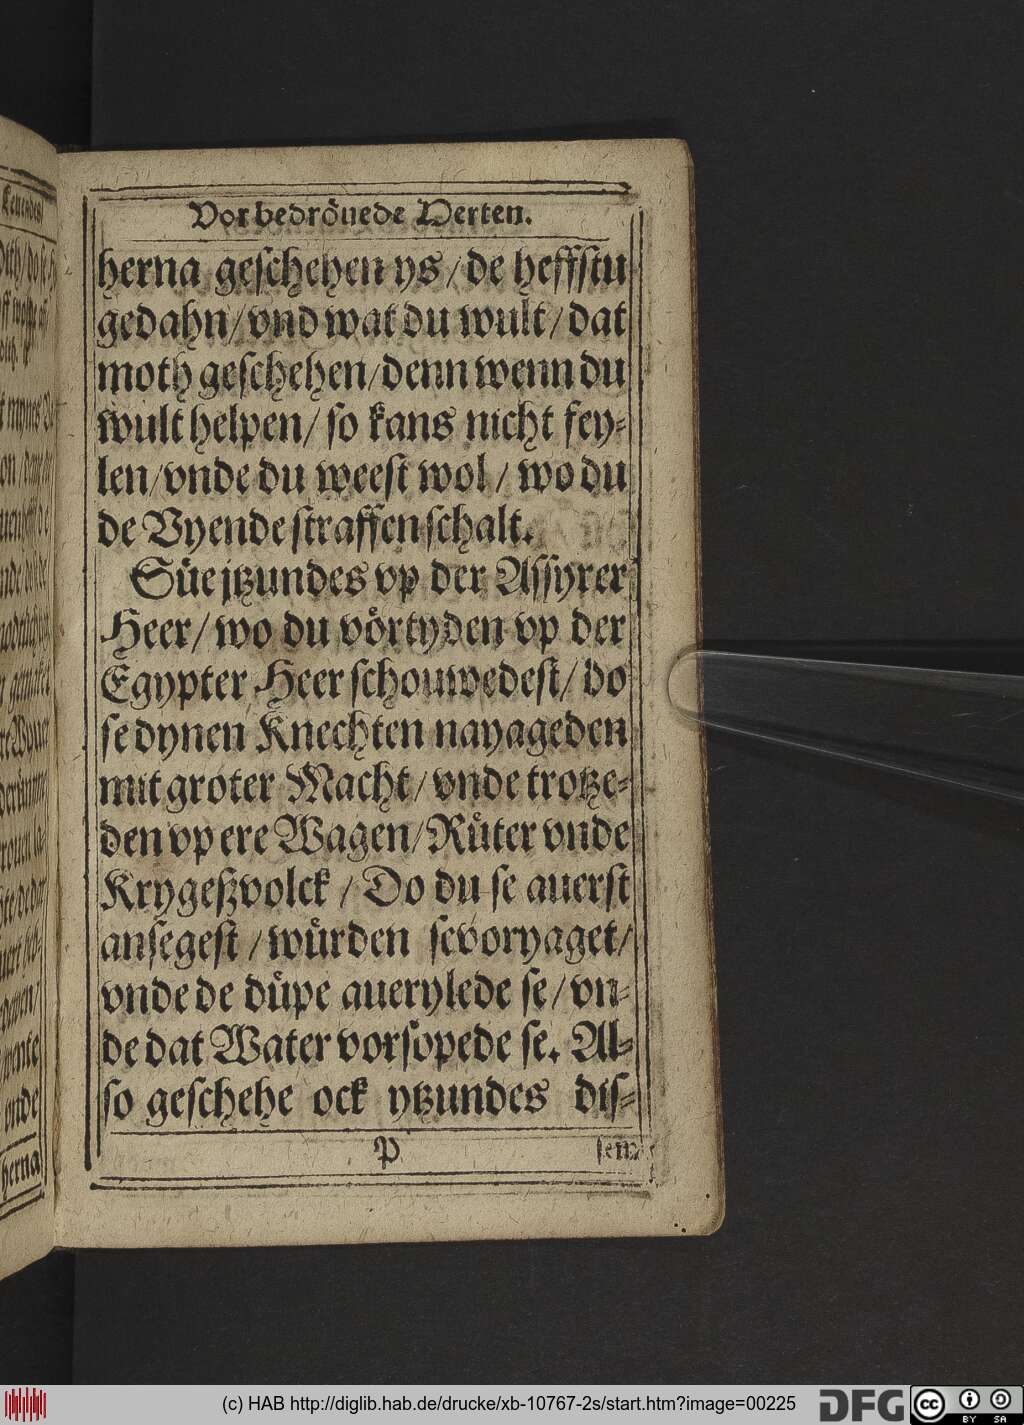 Vor bedröuede Herten.
herna geschehen ys / de heffstu
gedahn / vnd wat du wult / dat
moth geschehen / denn wenn du
wult helpen / so kans nicht fey-
len / vnde du weest wol / wo du
de Vyende straffen schalt.
Süe jtzundes vp der Assyrer
Heer / wo du vörtyden vp der
Egypter Heer schouwedest / do
se dynen Knechten nayageden
mit groter Macht / vnde trotze-
den vp ere Wagen / Rüter vnde
Krygeßvolck / Do du se auerst
ansegest / würden se voryaget /
vnde de düpe auerylede se / vn-
de dat Water vorsopede se. Al-
so geschehe ock ytzundes dis-
P
sem
herna
(c) HAB http://diglib.hab.de/drucke/xb-10767-2s/start.htm?image=00225
DFG
cc BY SA